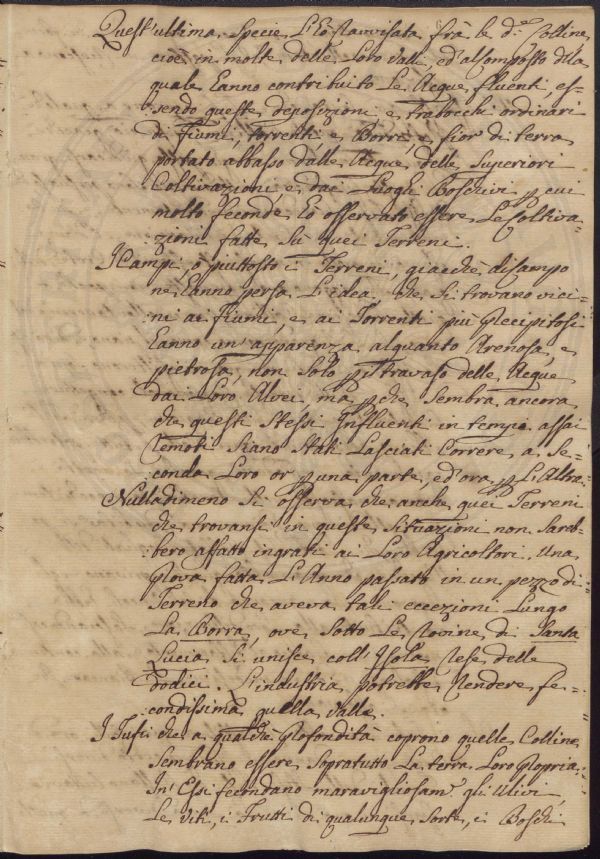 Quest'ultima Specie L'ò ravvisata frà le d.e Colline,
cioè in molte delle Loro Valli, ed al Composto della
quale Eanno contribuito Le Acque fluenti, es-
sendo queste deposizioni, e trabocchi ordinari
di Fiumi, torrenti e Borri, e fior di terra
portato abbasso dalle Acque delle Superiori
Coltivazioni, e dai Luoghi Boschivi p cui
molto feconde Eò osservato essere Le Coltiva-
zioni fatte Sù quei Terreni.
I Campi, ò piuttosto i Terreni, giacchè di Campo
ne Eanno persa L'idea, che si trovano vici-
ni ai fiumi, e ai Torrenti più Precipitosi
Eanno un'apparenza alquanto Arenosa, e
pietrosa, non Solo p il travaso delle Acque
dai Loro Alvei, ma pche Sembra ancora
che questi Stessi Influenti in tempo assai
remoti Siano Stati Lasciati Correre a Se-
conda Loro or p una parte, ed'ora p L'Altra.
Nulladimeno Si osserva che anche quei Terreni
che trovansi in queste Situazioni non Sareb-
bero affatto ingrati ai Loro Agricoltori. Una
Prova fatta L'Anno passato in un pezzo di
Terreno che aveva tali eccezioni Lungo
La Borra, ove Sotto Le Rovine di Santa
Lucia Si unisce coll'Isola rese delle
Dodici. L'industria potrebbe rendere fe-
condissima quella Valle.
I Tufi che a qualche Profondità coprono quelle Colline
Sembrano essere Sopratutto La terra Loro Propria.
In Essi fecondano maravigliosam.e gli Ulivi,
Le Viti, i Frutti di qualunque Sorte, i Boschi